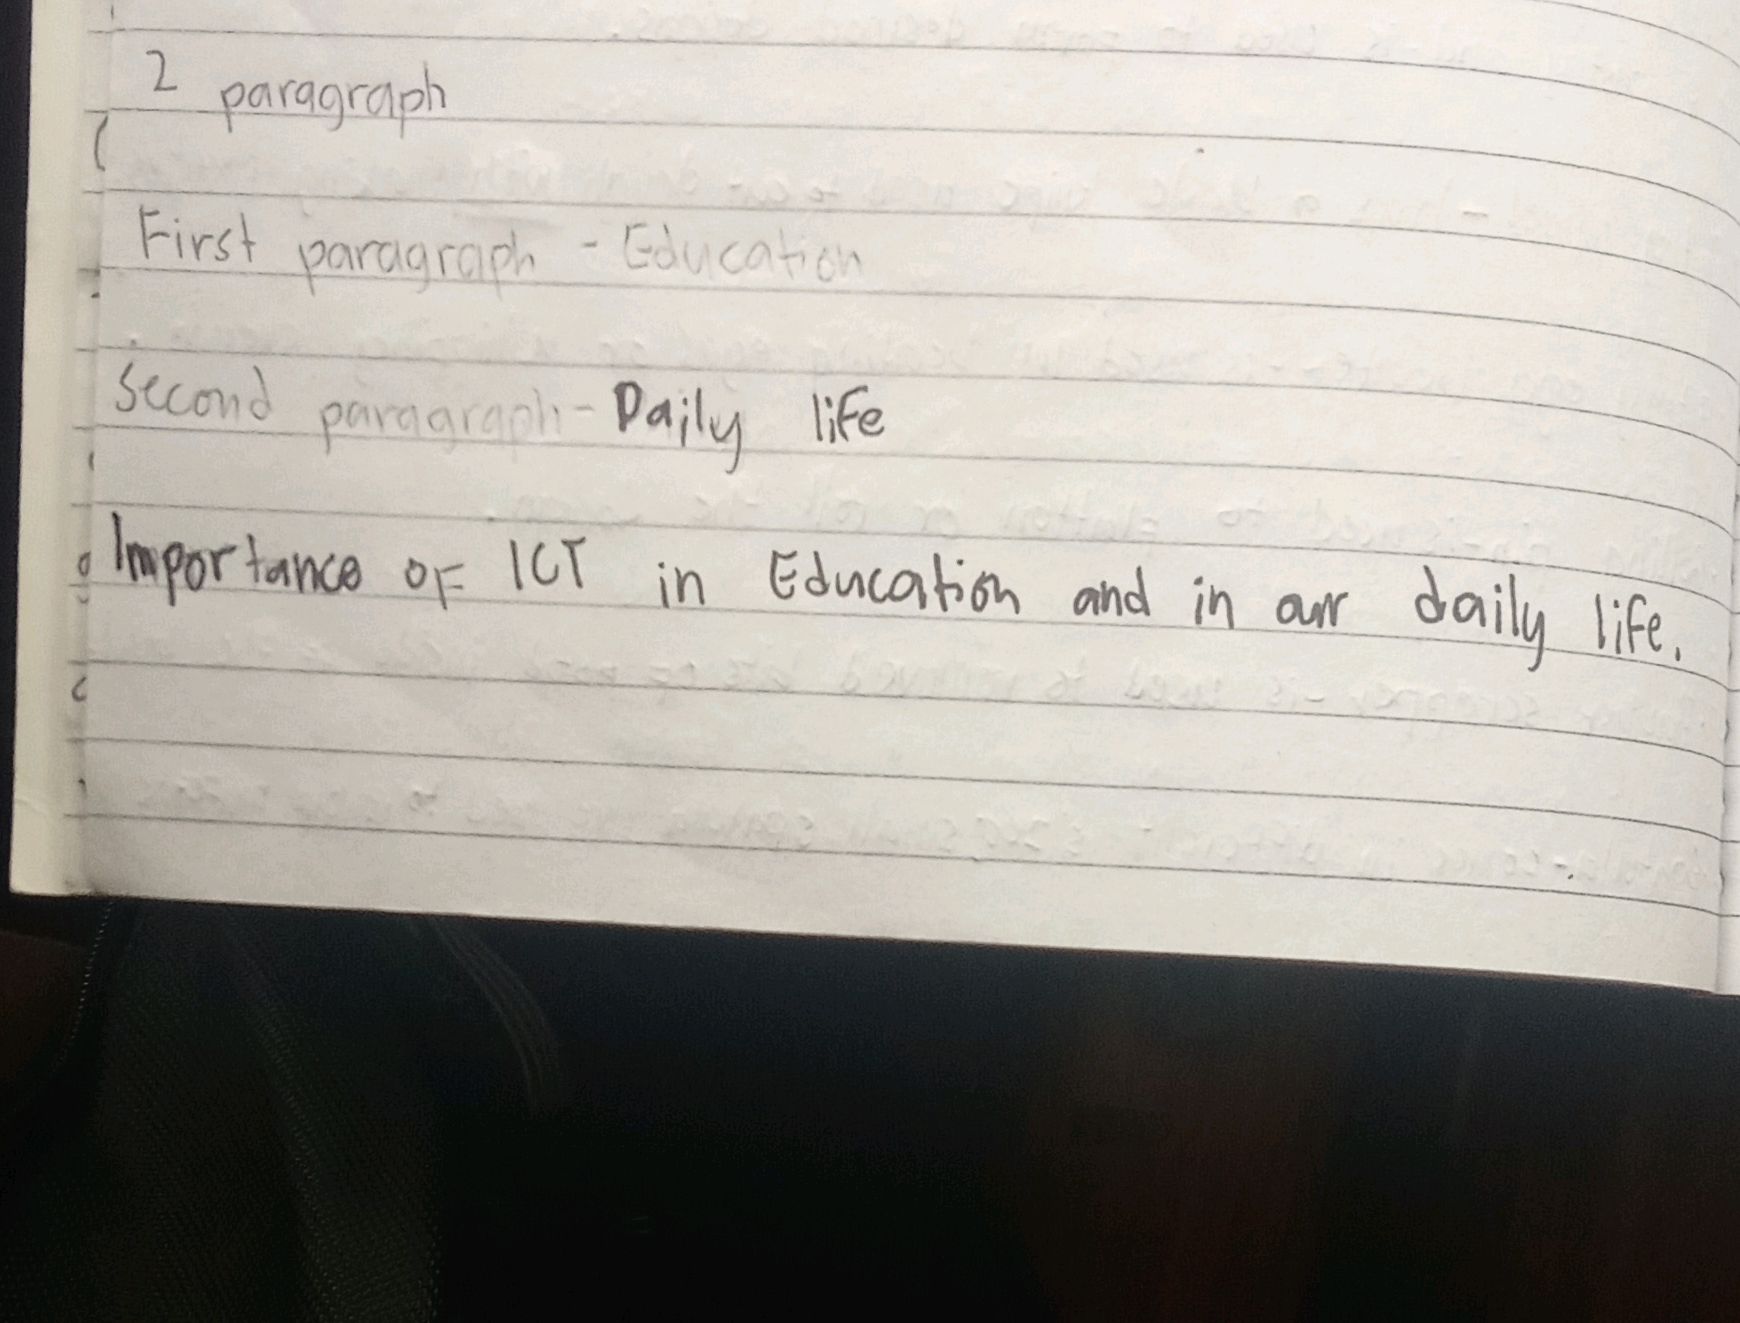 2 paragraph
First paragraph - Education
Second paragraph - Daily life
Importance of ICT in Education and in our daily life.